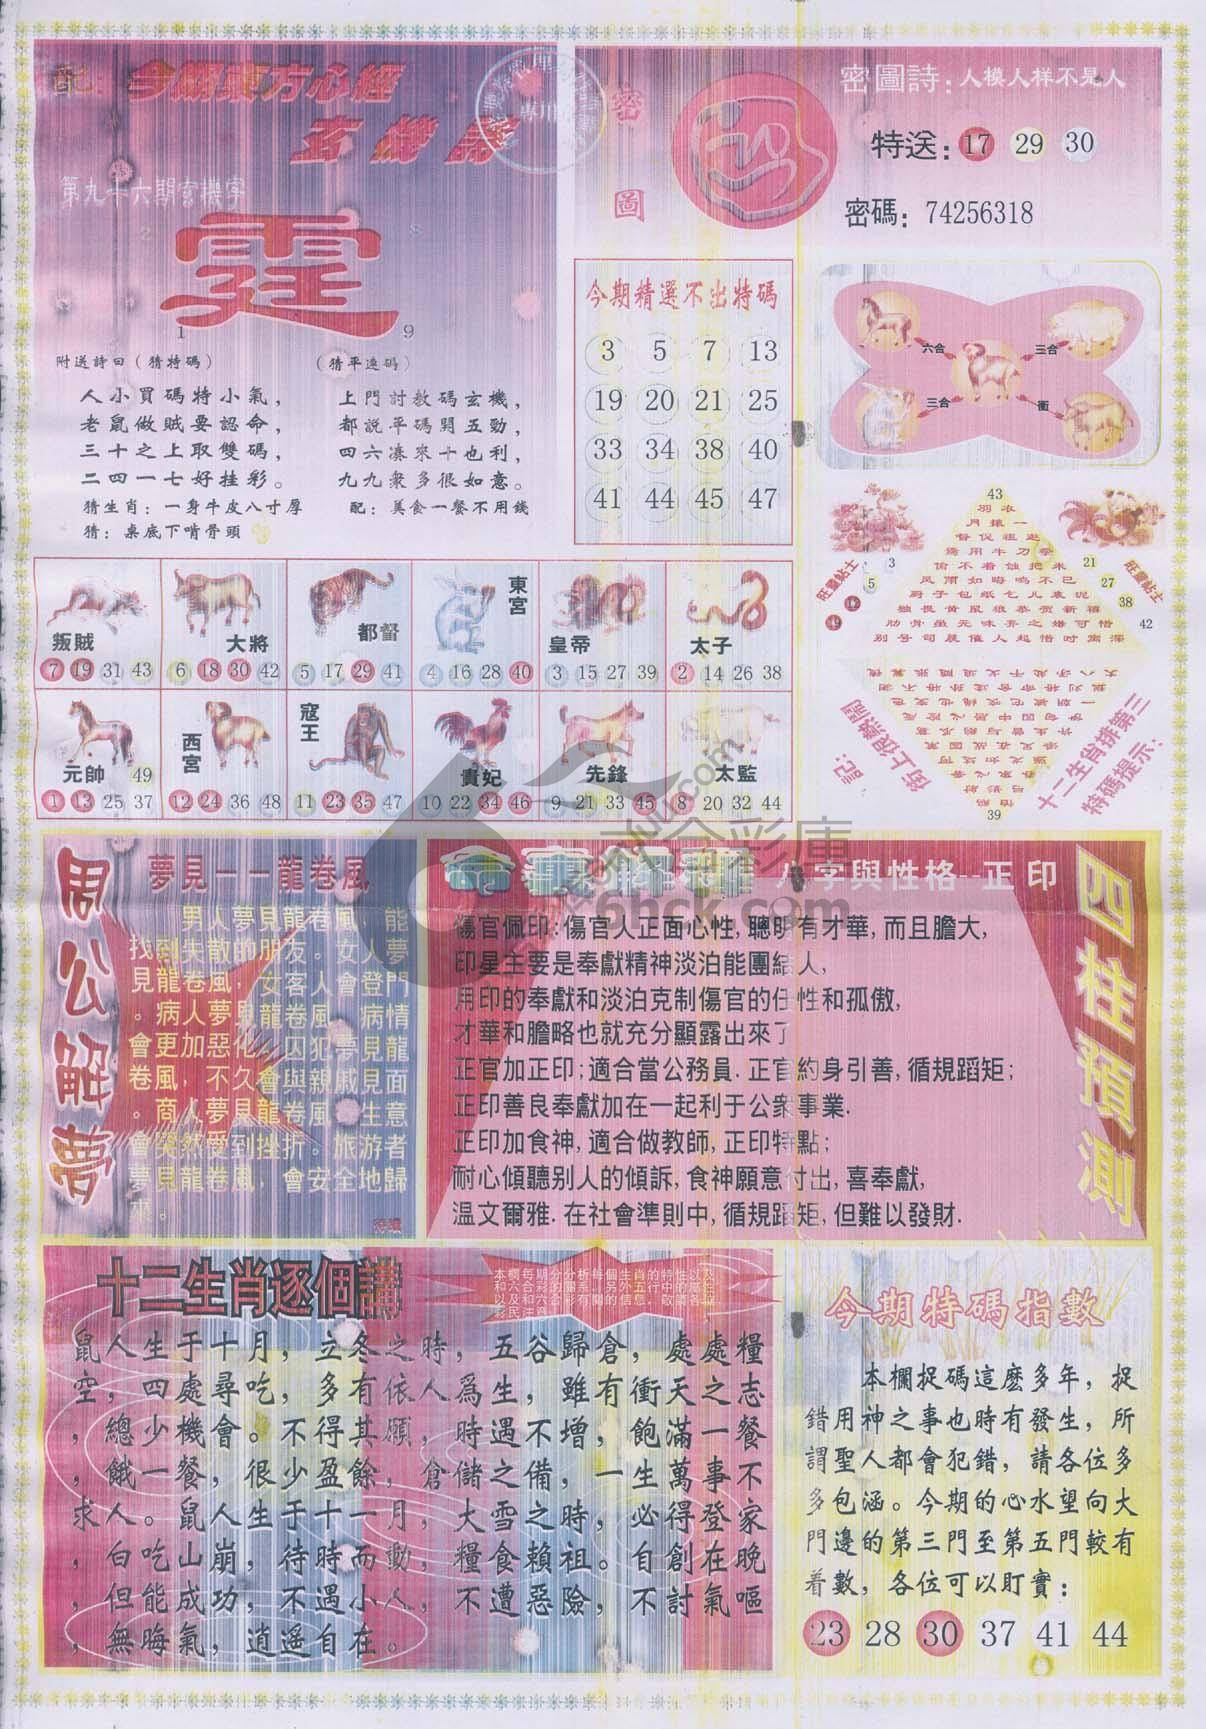 配:今期東方心經
玄機詩
第九十六期玄機字
2 8
霆
1 9
附送詩曰(猜特碼)
人小買碼特小氣,
老鼠做賊要認命,
三十之上取雙碼,
二四一七好挂彩。
(猜平透碼)
上門討教碼玄機,
都說平碼開五勁,
四六湊來十也利,
九九衆多很如意。
猜生肖:一身牛皮八寸厚
配:美食一餐不用錢
猜:桌底下啃骨頭
密圖
密圖詩:人模人样不是人
特送:17 29 30
密碼:74256318
今期精選不出特碼
3 5 7 13
19 20 21 25
33 34 38 40
41 44 45 47
六合
三合
三合
衝
43
羽衣
月猿一
督促祖逖
偷不着蚀把米
风雨如晦鸣不已
厨子包纸乞儿裹泥
独畏黄鼠狼恭贺新禧
肋骨虽无味弃之难可惜
别号司晨催人起惜时寓深
旺碼貼士
3
5
旺碼貼士
21
27
38
42
39
記:
街上很熱鬧
十二生肖排第三
特碼提示:
叛賊
7 19 31 43
大將
6 18 30 42
都督
5 17 29 41
東宮
4 16 28 40
皇帝
3 15 27 39
太子
2 14 26 38
元帥 49
1 13 25 37
西宮
12 24 36 48
寇王
11 23 35 47
貴妃
10 22 34 46
先鋒
9 21 33 45
太監
8 20 32 44
六合彩庫
6hck.com
周公解夢
夢見一一龍卷風
男人夢見龍卷風,能
找到失散的朋友。女人夢
見龍卷風,女客人會登門
。病人夢見龍卷風,病情
會更加惡化。囚犯夢見龍
卷風,不久會與親戚見面
。商人夢見龍卷風,生意
會突然受到挫折。旅游者
夢見龍卷風,會安全地歸
來。
待續
八字與性格--正印
四柱預測
傷官佩印:傷官人正面心性,聰明有才華,而且膽大,
印星主要是奉獻精神淡泊能團結人,
用印的奉獻和淡泊克制傷官的任性和孤傲,
才華和膽略也就充分顯露出來了
正官加正印;適合當公務員.正官約身引善,循規蹈矩;
正印善良奉獻加在一起利于公衆事業.
正印加食神,適合做教師,正印特點;
耐心傾聽别人的傾訴,食神願意付出,喜奉獻,
温文爾雅.在社會準則中,循規蹈矩,但難以發財.
十二生肖逐個講
鼠人生于十月,立冬之時,五谷歸倉,處處糧
空,四處尋吃,多有依人爲生,雖有衝天之志
,總少機會。不得其願,時遇不增,飽滿一餐
,餓一餐,很少盈餘,倉儲之備,一生萬事不
求人。鼠人生于十一月,大雪之時,必得登家
,白吃山崩,待時而動,糧食賴祖。自創在晚
,但能成功,不遇小人,不遭惡險,不討氣嘔
,無晦氣,逍遥自在。
今期特碼指數
本欄捉碼這麽多年,捉
錯用神之事也時有發生,所
謂聖人都會犯錯,請各位多
多包涵。今期的心水望向大
門邊的第三門至第五門較有
着數,各位可以盯實:
23 28 30 37 41 44